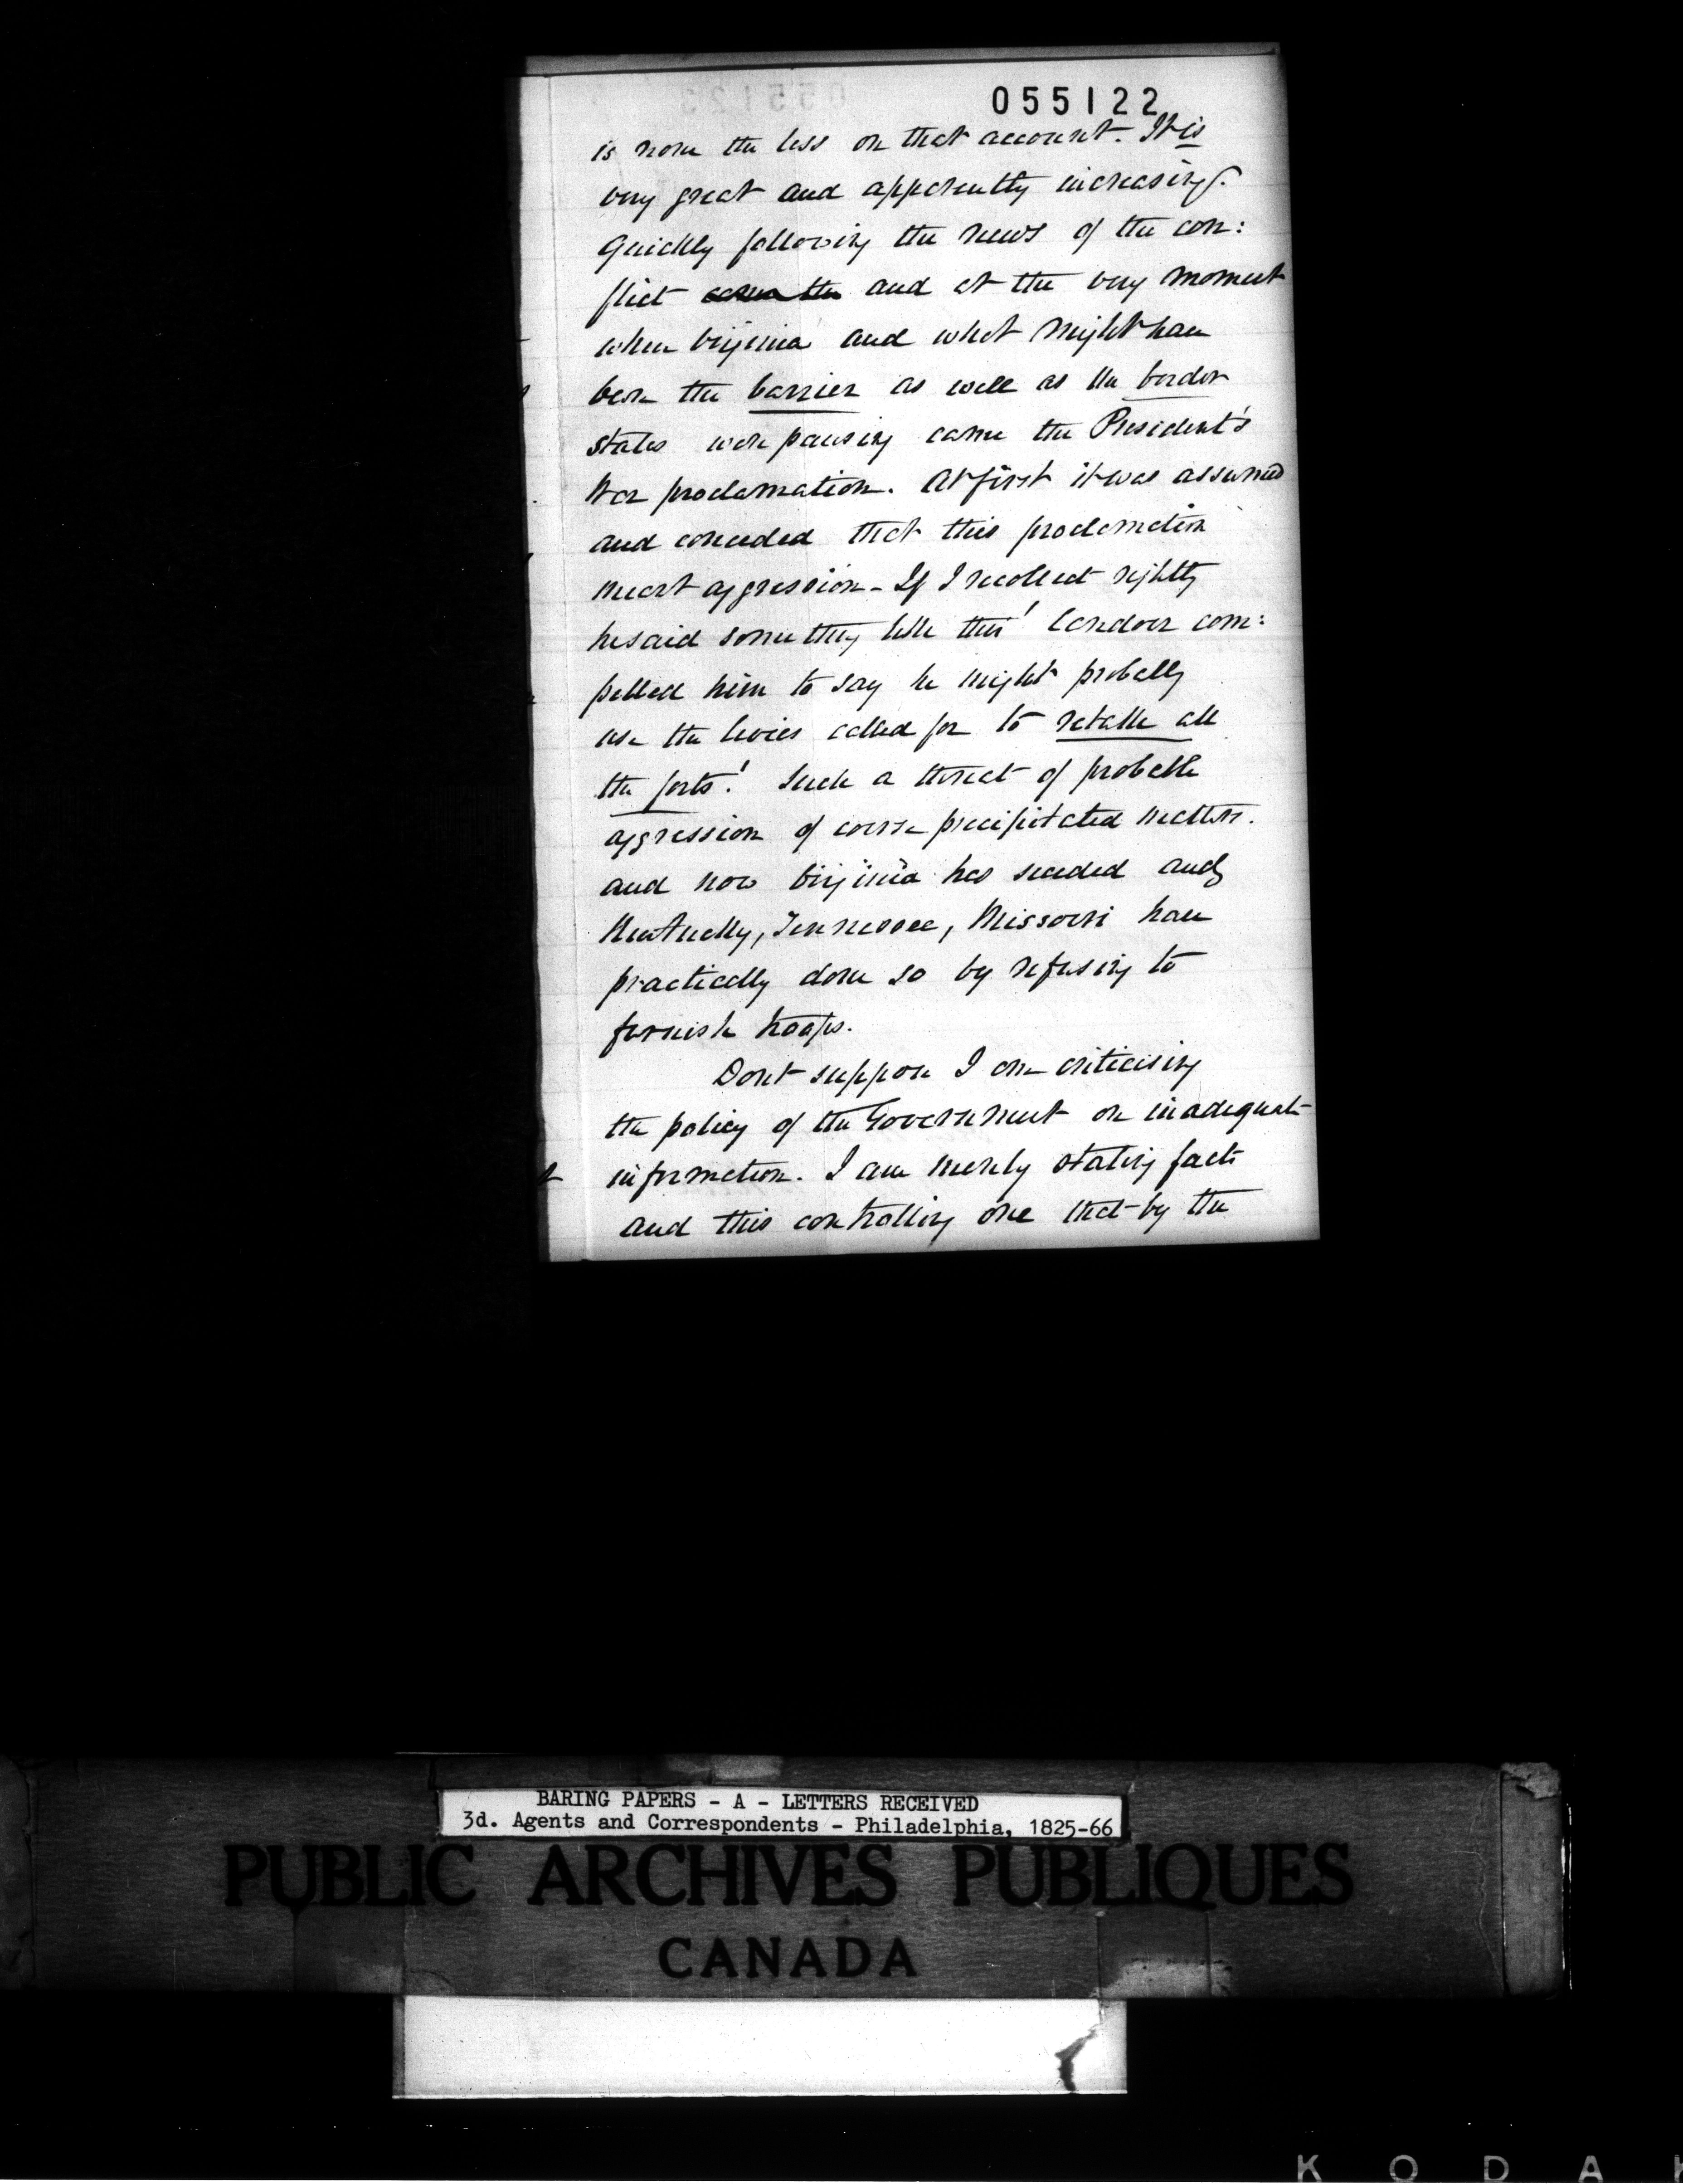 055122
is none the less on that account. It is
very great and apparently increasing.
Quickly following the news of the con:
flict came the and at the very moment
when Virginia and what might have
been the barrier as well as the border
states were pausing came the President's
War proclamation. At first it was assumed
and conceded that this proclamation
meant aggression - If I recollect rightly
he said something like this 'Candour com:
pelled him to say he might probably
use the levies called for to retake all
the forts!' Such a threat of probable
aggression of course precipitated matters.
and now Virginia has seceded and
Kentucky, Tennessee, Missouri have
practically done so by refusing to
furnish troops.
Dont suppose I am criticising
the policy of the Government on inadequate
information. I am merely stating facts
and this controlling one that by the
BARING PAPERS - A - LETTERS RECEIVED
3d. Agents and Correspondents - Philadelphia, 1825-66
PUBLIC ARCHIVES PUBLIQUES
CANADA
KODAK